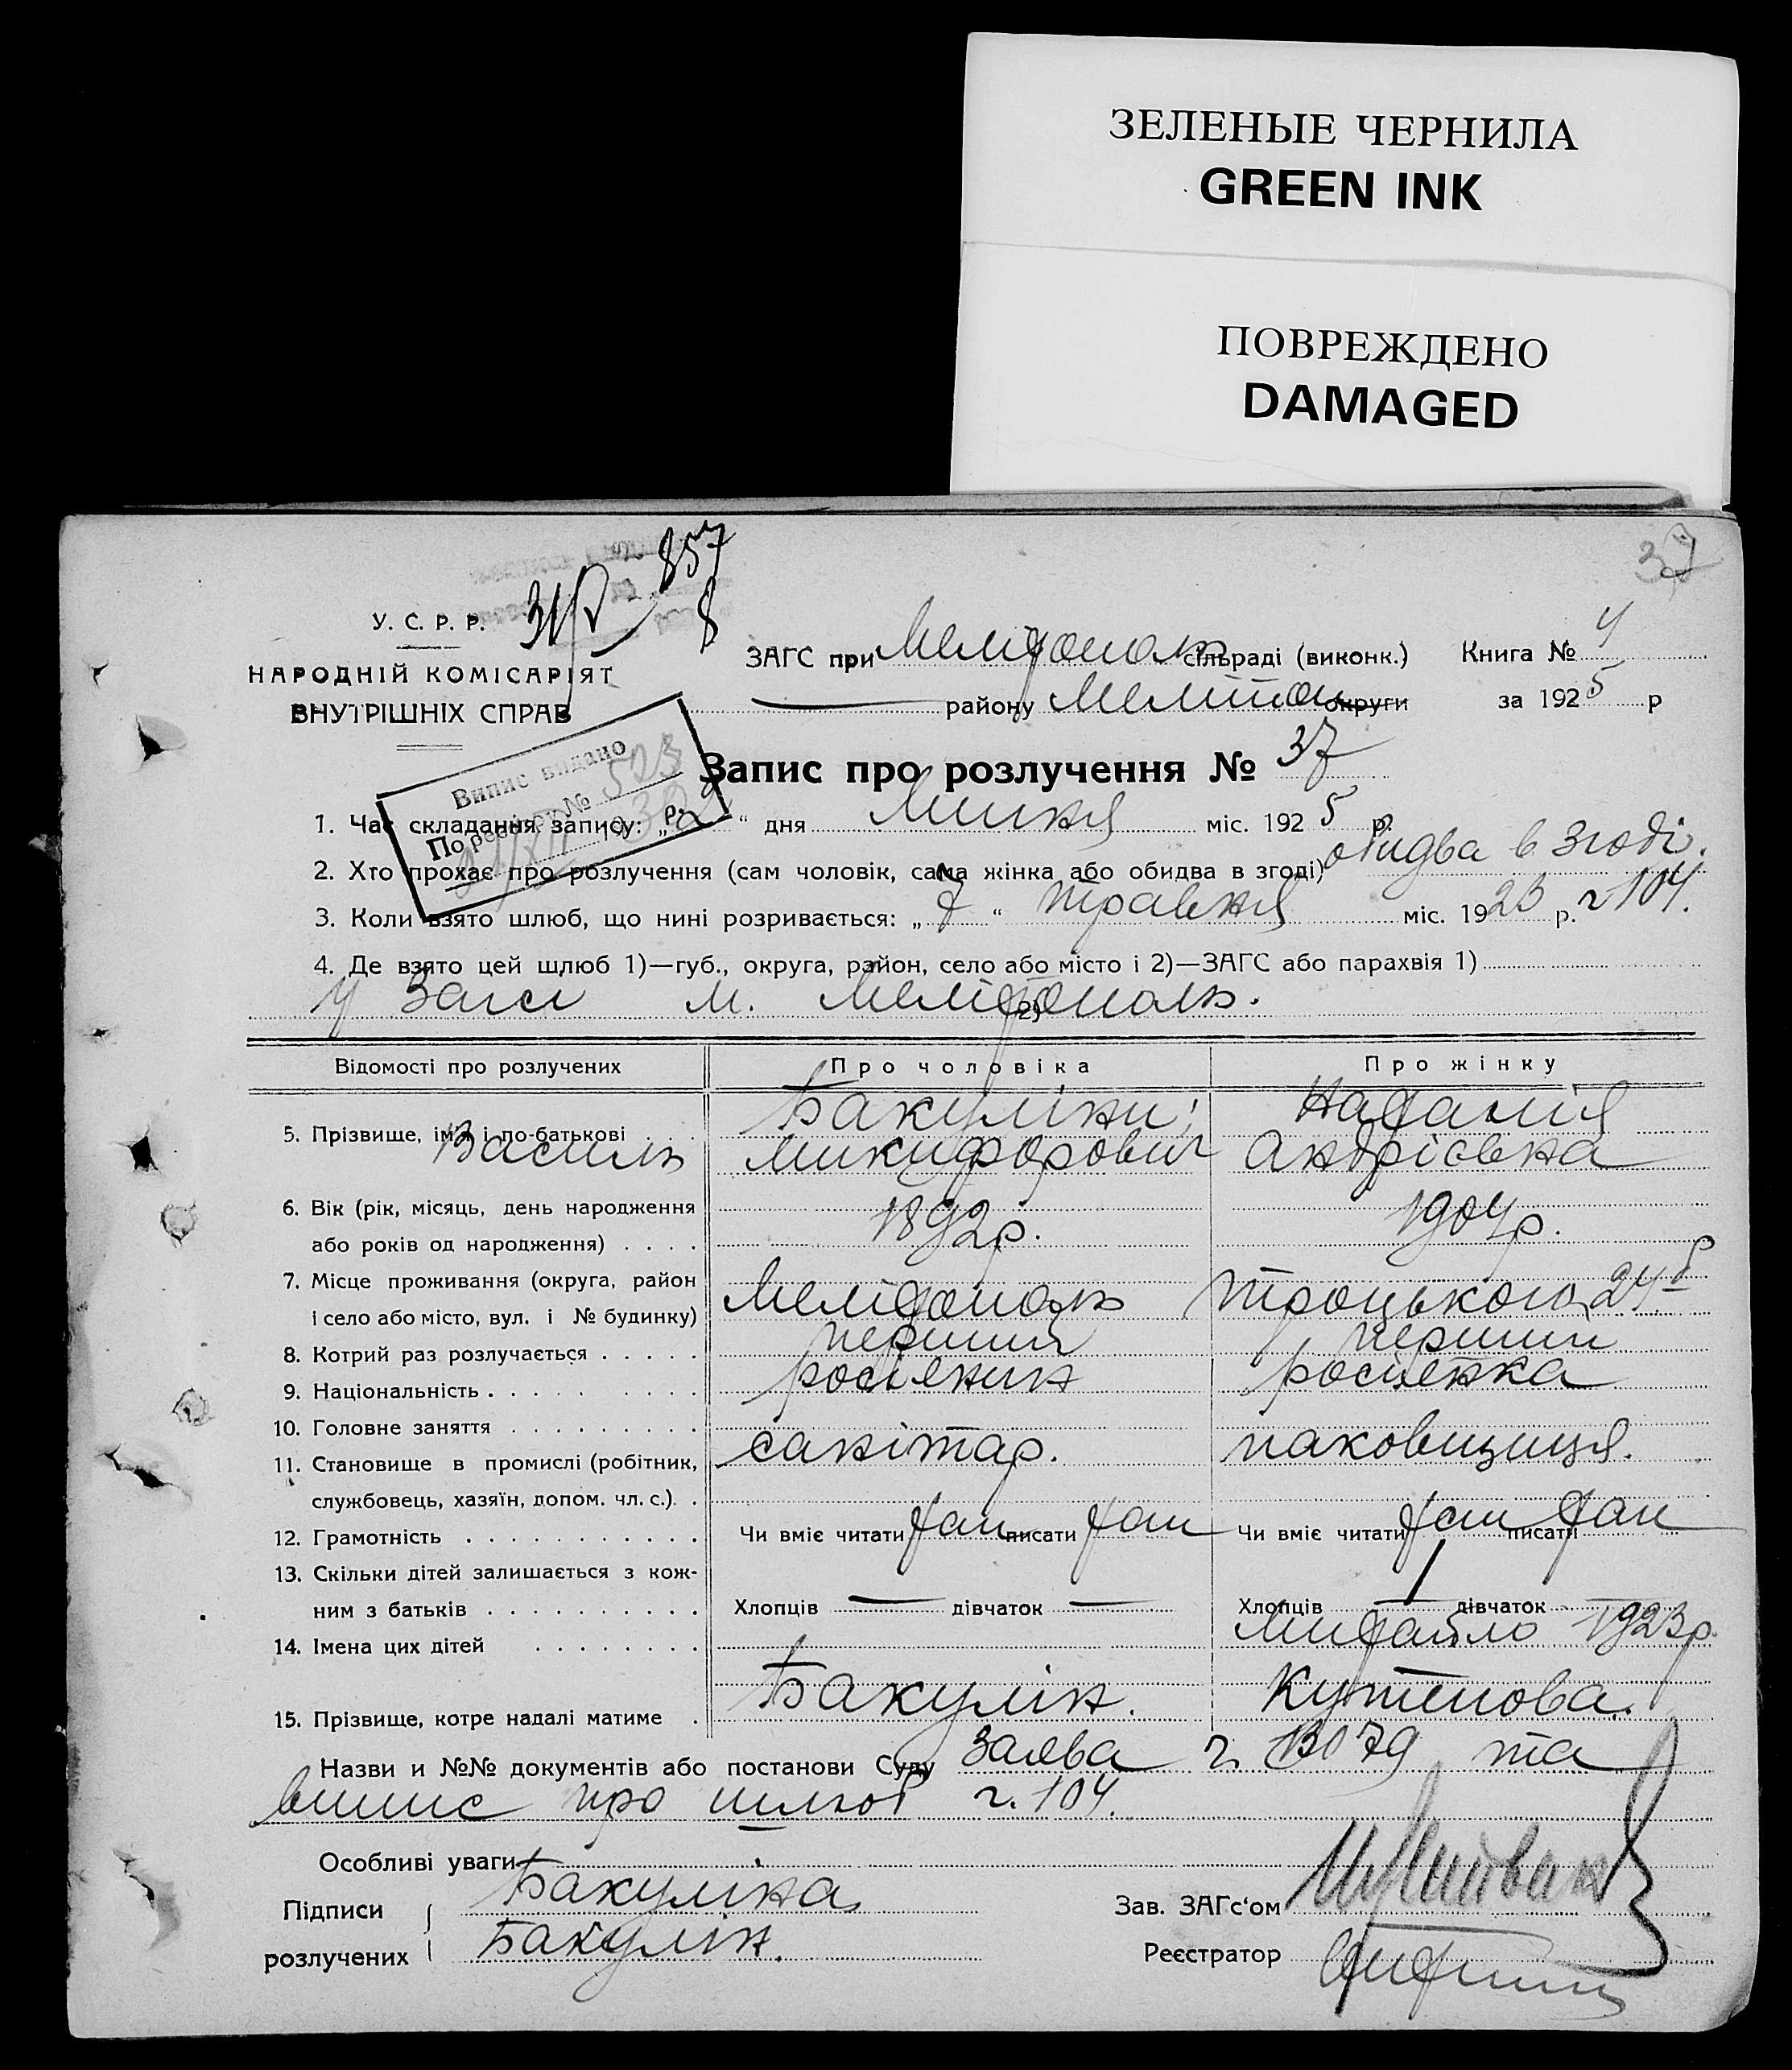 ЗЕЛЕНЫЕ ЧЕРНИЛА
GREEN INK
ПОВРЕЖДЕНО
DAMAGED
37
857
У. С. Р. Р.
НАРОДНІЙ КОМІСАРІЯТ
ВНУТРІШНІХ СПРАВ
ЗАГС при Мелітополь сільраді (виконк.) Книга № 4
— району Мелітоп округи за 1925 р
Випис видано
По реєстру № 503
193 р.
Запис про розлучення № 37
1. Час складання запису: „2“ дня Липня міс. 1925 р.
2. Хто прохає про розлучення (сам чоловік, сама жінка або обидва в згоді) обидва в згоді.
3. Коли взято шлюб, що нині розривається: „7“ травня міс. 1923 р. ч 104.
4. Де взято цей шлюб 1)—губ., округа, район, село або місто і 2)—ЗАГС або парахвія 1)
у Загсі м. Мелітополь. 2)
Відомості про розлучених Про чоловіка Про жінку
5. Прізвище, ім'я і по-батькові Бакуліни; Наталія
Василь Микифорович Андріевна
6. Вік (рік, місяць, день народження
або років од народження) 1892 р. 1904 р.
7. Місце проживання (округа, район
і село або місто, вул. і № будинку) Мелітополь Троцького 24
8. Котрий раз розлучається перший перший
9. Національність росіянин росіянка
10. Головне заняття санітар. паковщиця.
11. Становище в промислі (робітник,
службовець, хазяїн, допом. чл. с.)
12. Грамотність Чи вміє читати так писати так Чи вміє читати так писати так
13. Скільки дітей залишається з кож-
ним з батьків Хлопців — дівчаток — Хлопців 1 дівчаток —
14. Імена цих дітей Михайло 1923 р.
15. Прізвище, котре надалі матиме Бакулін. Кутепова.
Назви и №№ документів або постанови Суду Заява ч. 13079 та
випис про шлюб ч. 104.
Особливі уваги —
Підписи Бакуліна
розлучених Бакулін.
Зав. ЗАГс'ом
Реєстратор